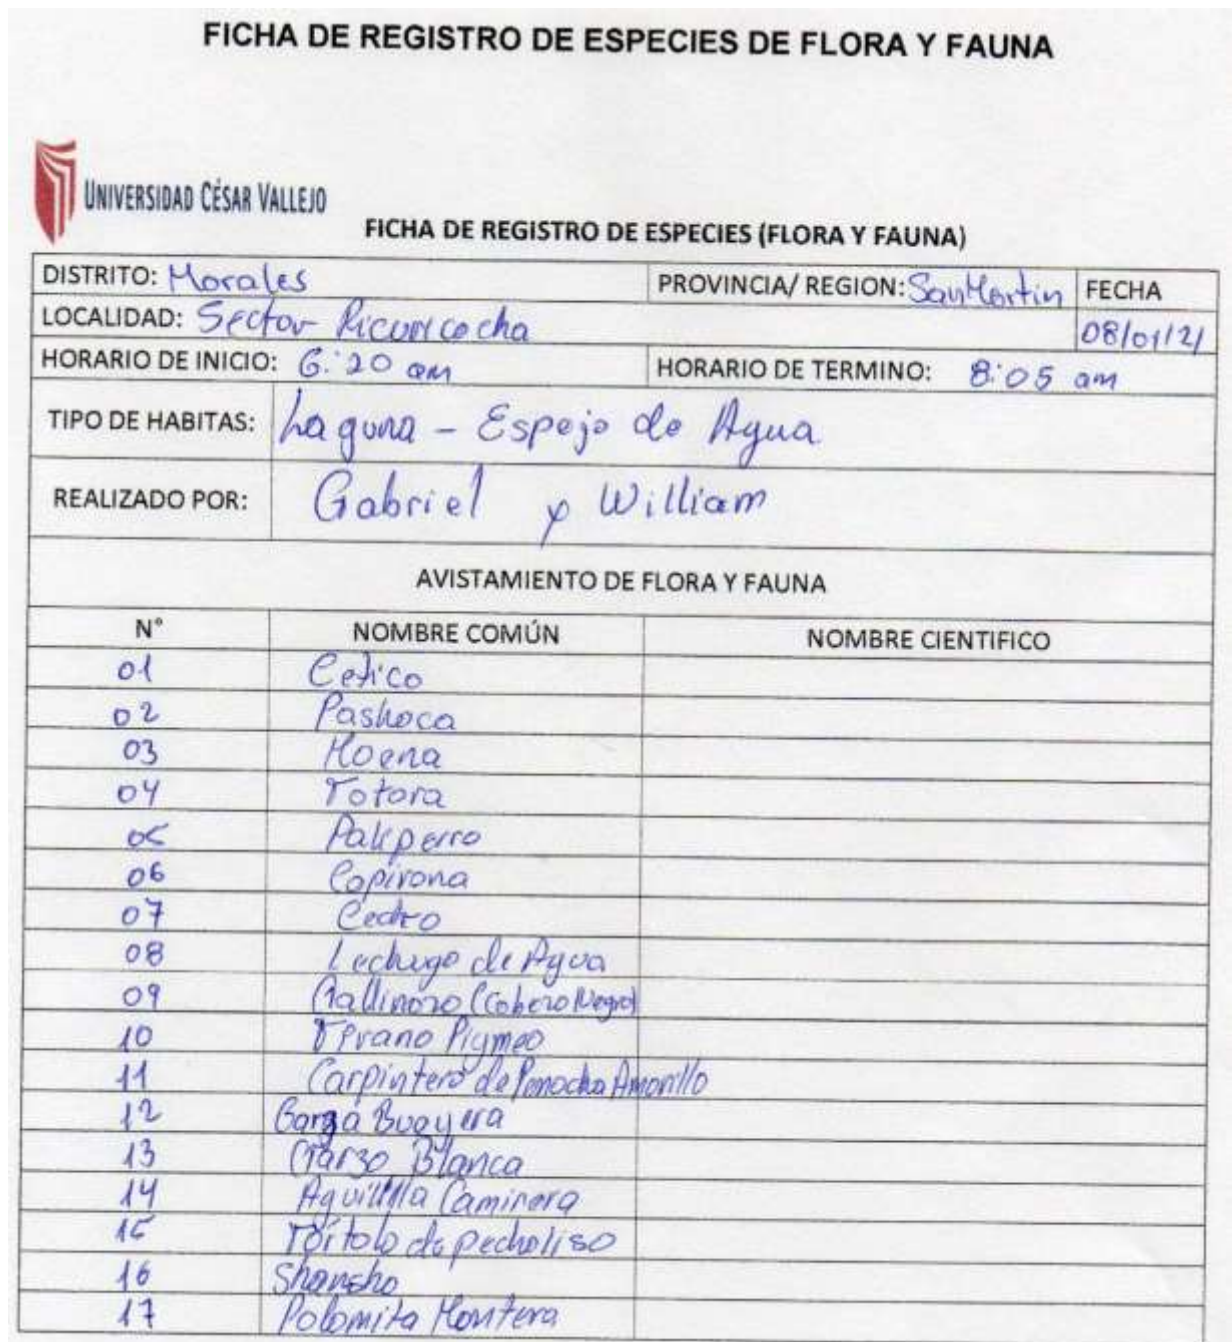 FICHA DE REGISTRO DE ESPECIES DE FLORA Y FAUNA
UNIVERSIDAD CÉSAR VALLEJO
FICHA DE REGISTRO DE ESPECIES (FLORA Y FAUNA)
DISTRITO: Morales PROVINCIA/ REGION: San Martin FECHA
LOCALIDAD: Sector Ricuricocha 08/01/21
HORARIO DE INICIO: 6:20 am HORARIO DE TERMINO: 8:05 am
TIPO DE HABITAS: Laguna - Espejo de Agua
REALIZADO POR: Gabriel y William
AVISTAMIENTO DE FLORA Y FAUNA
N° NOMBRE COMÚN NOMBRE CIENTIFICO
01 Cetico
02 Pashaca
03 Moena
04 Totora
05 Paliperro
06 Capirona
07 Cedro
08 Lechuga de Agua
09 Gallinazo (Cabeza Negra)
10 Tirano Pigmeo
11 Carpintero de Penacho Amarillo
12 Garza Bueyera
13 Garza Blanca
14 Aguililla Caminera
15 de pecho liso
16 Shansho
17 Palomita Montera